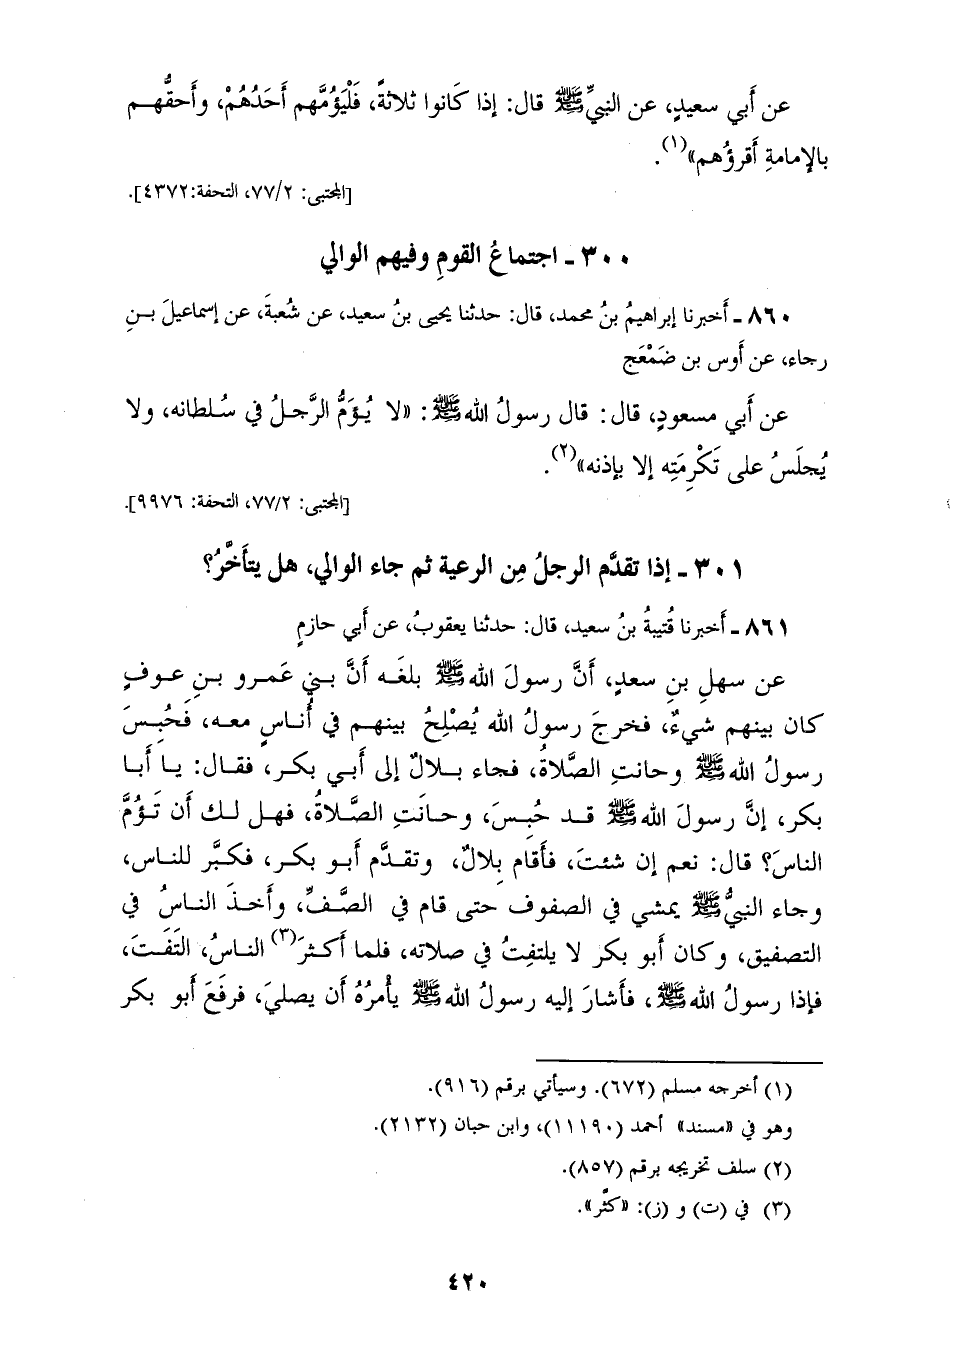 عن أَبي سعيدٍ، عن النبيِّ ﷺ قال: إذا كَانوا ثلاثةً، فَلْيَؤُمَّهم أَحَدُهُمْ، وأَحقُّهم
بالإمامةِ أَقرؤُهم»(١).
[المجتبى: ٧٧/٢، التحفة:٤٣٧٢].
٣٠٠ ـ اجتماعُ القومِ وفيهم الوالي
٨٦٠ ـ أَخبرنا إبراهيمُ بنُ محمد، قال: حدثنا يحيى بنُ سعيد، عن شُعبةَ، عن إسماعيلَ بنِ
رجاء، عن أَوس بن ضَمْعَج
عن أَبي مسعودٍ، قال: قال رسولُ الله ﷺ: «لا يُؤَمُّ الرَّجلُ في سُلطانه، ولا
يُجلَسُ على تَكْرِمَتِه إلا بإذنه»(٢).
[المجتبى: ٧٧/٢، التحفة: ٩٩٧٦].
٣٠١ ـ إذا تقدَّم الرجلُ مِن الرعية ثم جاء الوالي، هل يتأَخَّرُ؟
٨٦١ ـ أَخبرنا قُتيبةُ بنُ سعيد، قال: حدثنا يعقوبُ، عن أَبي حازمٍ
عن سهلِ بنِ سعدٍ، أَنَّ رسولَ الله ﷺ بلغَه أَنَّ بني عَمرو بنِ عوفٍ
كان بينهم شيءٌ، فخرجَ رسولُ الله يُصْلِحُ بينهم في أُناسٍ معه، فَحُبِسَ
رسولُ الله ﷺ وحانتِ الصَّلاةُ، فجاء بلالٌ إلى أَبي بكر، فقال: يا أَبا
بكر، إنَّ رسولَ الله ﷺ قد حُبِسَ، وحانَتِ الصَّلاةُ، فهل لك أَن تَؤُمَّ
الناسَ؟ قال: نعم إن شئتَ، فأَقام بِلالٌ، وتقدَّم أَبو بكر، فكبَّر للناس،
وجاء النبيُّ ﷺ يمشي في الصفوف حتى قام في الصَّفِّ، وأَخذَ الناسُ في
التصفيق، وكان أَبو بكر لا يلتفِتُ في صلاته، فلما أَكثرَ(٣) الناسُ، التَفَتَ،
فإذا رسولُ الله ﷺ، فأَشارَ إليه رسولُ الله ﷺ يأْمرُهُ أَن يصليَ، فرفَعَ أَبو بكر
(١) أخرجه مسلم (٦٧٢). وسيأتي برقم (٩١٦).
وهو في «مسند» أحمد (١١١٩٠)، وابن حبان (٢١٣٢).
(٢) سلف تخريجه برقم (٨٥٧).
(٣) في (ت) و (ز): «كثَّر».
٤٢٠